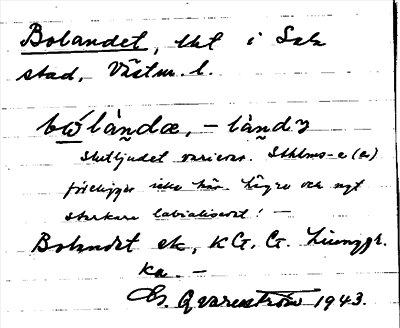 Bolandet, lkt i Sala
stad, Västm. l.
bώlàndæ, – làndɜ
Slutljudet varierar. Sthlms-e (ä)
föreligger icke här. Högre och ngt
starkare labialiserat! —
Bolandet ek, KG. G. Ljunggr.
ka. —
Er. Qvarnström 1943.